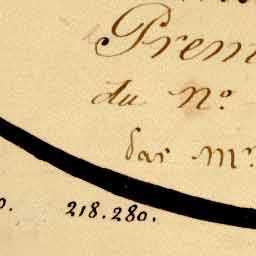 Prem
du No.
par Mr.
0. 218.280.